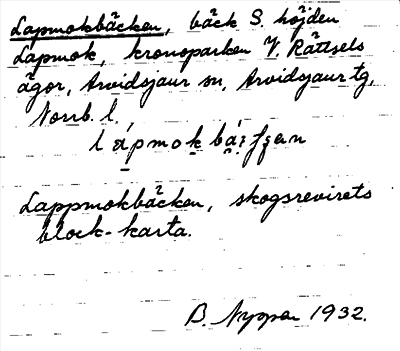 Lapmokbäcken, bäck S. höjden
Lapmok, kronoparken V. Rättsels
ägor, Arvidsjaur sn, Arvidsjaur tg,
Norrb. l.
Lappmokbäcken, skogsrevirets
block-karta.
B. Nyman 1932.